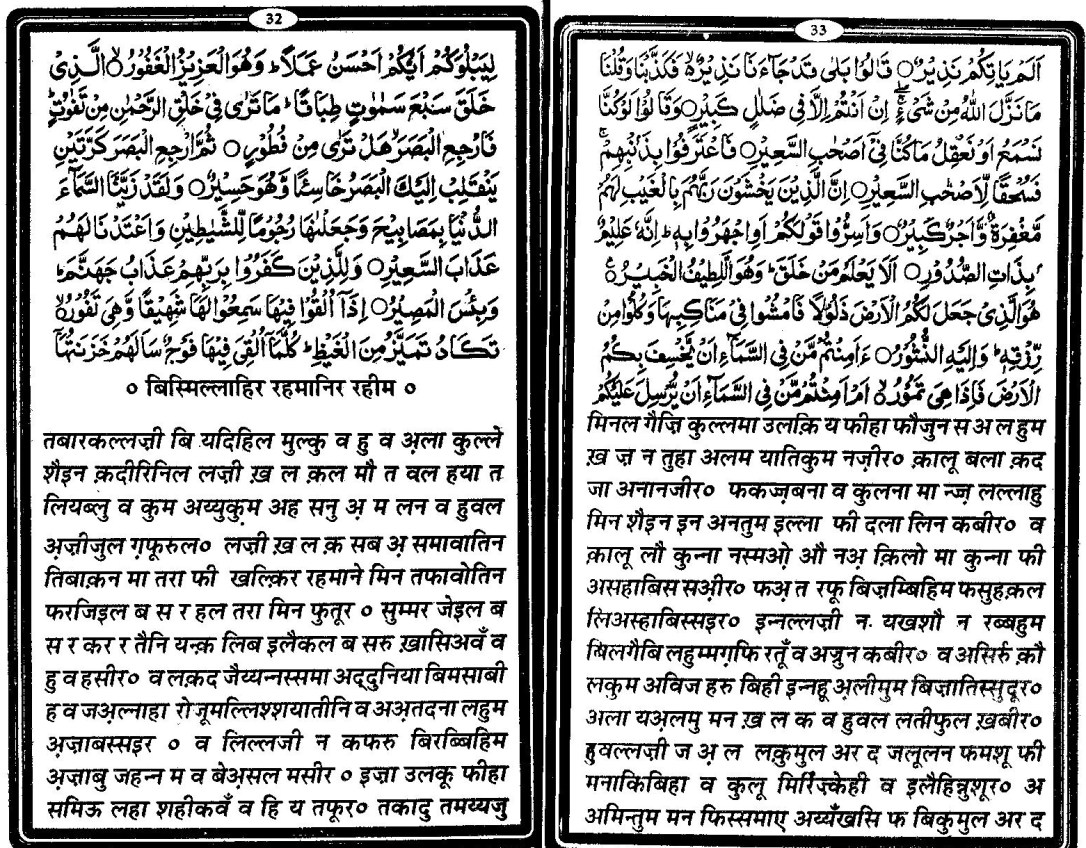 32
لِيَبْلُوَكُمْ اَيُّكُمْ اَحْسَنُ عَمَلًاؕ وَهُوَ الْعَزِيْزُ الْغَفُوْرُۙ○ الَّذِىْ
خَلَقَ سَبْعَ سَمٰوٰتٍ طِبَاقًاؕ مَا تَرٰى فِىْ خَلْقِ الرَّحْمٰنِ مِنْ تَفٰوُتٍؕ
فَارْجِعِ الْبَصَرَۙ هَلْ تَرٰى مِنْ فُطُوْرٍ○ ثُمَّ ارْجِعِ الْبَصَرَ كَرَّتَيْنِ
يَنْقَلِبْ اِلَيْكَ الْبَصَرُ خَاسِئًا وَّهُوَ حَسِيْرٌ○ وَلَقَدْ زَيَّنَّا السَّمَآءَ
الدُّنْيَا بِمَصَابِيْحَ وَجَعَلْنٰهَا رُجُوْمًا لِّلشَّيٰطِيْنِ وَاَعْتَدْنَا لَهُمْ
عَذَابَ السَّعِيْرِ○ وَلِلَّذِيْنَ كَفَرُوْا بِرَبِّهِمْ عَذَابُ جَهَنَّمَؕ
وَبِئْسَ الْمَصِيْرُ○ اِذَآ اُلْقُوْا فِيْهَا سَمِعُوْا لَهَا شَهِيْقًا وَّهِىَ تَفُوْرُۙ○
تَكَادُ تَمَيَّزُ مِنَ الْغَيْظِؕ كُلَّمَآ اُلْقِىَ فِيْهَا فَوْجٌ سَاَلَهُمْ خَزَنَتُهَآ
० बिस्मिल्लाहिर रहमानिर रहीम ०
तबारकल्लज़ी बि यदिहिल मुल्कु व हु व अ़ला कुल्ले
शैइन क़दीरिनिल लज़ी ख़ ल क़ल मौ त वल हया त
लियब्लु व कुम अय्युकुम अह सनु अ़ म लन व हुवल
अज़ीजुल ग़फूरुल० लज़ी ख़ ल क़ सब अ़ समावातिन
तिबाक़न मा तरा फी खल्क़िर रहमाने मिन तफावोतिन
फरजिइल ब स र हल तरा मिन फुतूर ० सुम्मर जेइल ब
स र कर र तैनि यन्क़ लिब इलैकल ब सरु ख़ासिअवँ व
हु व हसीर० व लक़द जैय्यन्नस्समा अद्दुनिया बिमसाबी
ह व जअ़ल्नाहा रोजूमल्लिश्शयातीनि व अअ़तदना लहुम
अज़ाबस्सइर ० व लिल्लजी न कफरु बिरब्बिहिम
अज़ाबु जहन्न म व बेअ़सल मसीर ० इज़ा उलकू फीहा
समिऊ लहा शहीकवँ व हि य तफूर० तकादु तमय्यजु
33
اَلَمْ يَاْتِكُمْ نَذِيْرٌ○ قَالُوْا بَلٰى قَدْ جَآءَنَا نَذِيْرٌۙ○ فَكَذَّبْنَا وَقُلْنَا
مَا نَزَّلَ اللّٰهُ مِنْ شَىْءٍۚۖ اِنْ اَنْتُمْ اِلَّا فِىْ ضَلٰلٍ كَبِيْرٍ○ وَقَالُوْا لَوْ كُنَّا
نَسْمَعُ اَوْ نَعْقِلُ مَا كُنَّا فِىْٓ اَصْحٰبِ السَّعِيْرِ○ فَاعْتَرَفُوْا بِذَنْۢبِهِمْۚ
فَسُحْقًا لِّاَصْحٰبِ السَّعِيْرِ○ اِنَّ الَّذِيْنَ يَخْشَوْنَ رَبَّهُمْ بِالْغَيْبِ لَهُمْ
مَّغْفِرَةٌ وَّاَجْرٌ كَبِيْرٌ○ وَاَسِرُّوْا قَوْلَكُمْ اَوِ اجْهَرُوْا بِهٖؕ اِنَّهٗ عَلِيْمٌۢ
بِذَاتِ الصُّدُوْرِ○ اَلَا يَعْلَمُ مَنْ خَلَقَؕ وَهُوَ اللَّطِيْفُ الْخَبِيْرُ○
هُوَ الَّذِىْ جَعَلَ لَكُمُ الْاَرْضَ ذَلُوْلًا فَامْشُوْا فِىْ مَنَاكِبِهَا وَكُلُوْا مِنْ
رِّزْقِهٖؕ وَاِلَيْهِ النُّشُوْرُ○ ءَاَمِنْتُمْ مَّنْ فِى السَّمَآءِ اَنْ يَّخْسِفَ بِكُمُ
الْاَرْضَ فَاِذَا هِىَ تَمُوْرُۙ○ اَمْ اَمِنْتُمْ مَّنْ فِى السَّمَآءِ اَنْ يُّرْسِلَ عَلَيْكُمْ
मिनल गैज़ि कुल्लमा उलक़ि य फीहा फौजुन स अ ल हुम
ख़ ज़ न तुहा अलम यातिकुम नज़ीर० क़ालू बला क़द
जा अनानजीर० फकज़्ज़बना व कुलना मा न्ज़्ज़ लल्लाहु
मिन शैइन इन अनतुम इल्ला फी दला लिन कबीर० व
क़ालू लौ कुन्ना नस्मओ़ औ नअ़ क़िलो मा कुन्ना फी
असहाबिस सअ़ीर० फअ़ त रफू बिज़म्बिहिम फसुहक़ल
लिअस्हाबिस्सइर० इन्नल्लज़ी न यखशौ न रब्बहुम
बिलगैबि लहुम्मग़फि रतूँ व अज्रुन कबीर० व असिर्रु क़ौ
लकुम अविज हरु बिही इन्नहू अ़लीमुम बिज़ातिस्सुदूर०
अला यअ़लमु मन ख़ ल क व हुवल लतीफुल ख़बीर०
हुवल्लज़ी ज अ़ ल लक़ुमुल अर द जलूलन फमशू फी
मनाकिबिहा व कुलू मिर्रिज़्केही व इलैहिन्नुशूर० अ
अमिन्तुम मन फिस्समाए अय्यँखसि फ बिकुमुल अर द